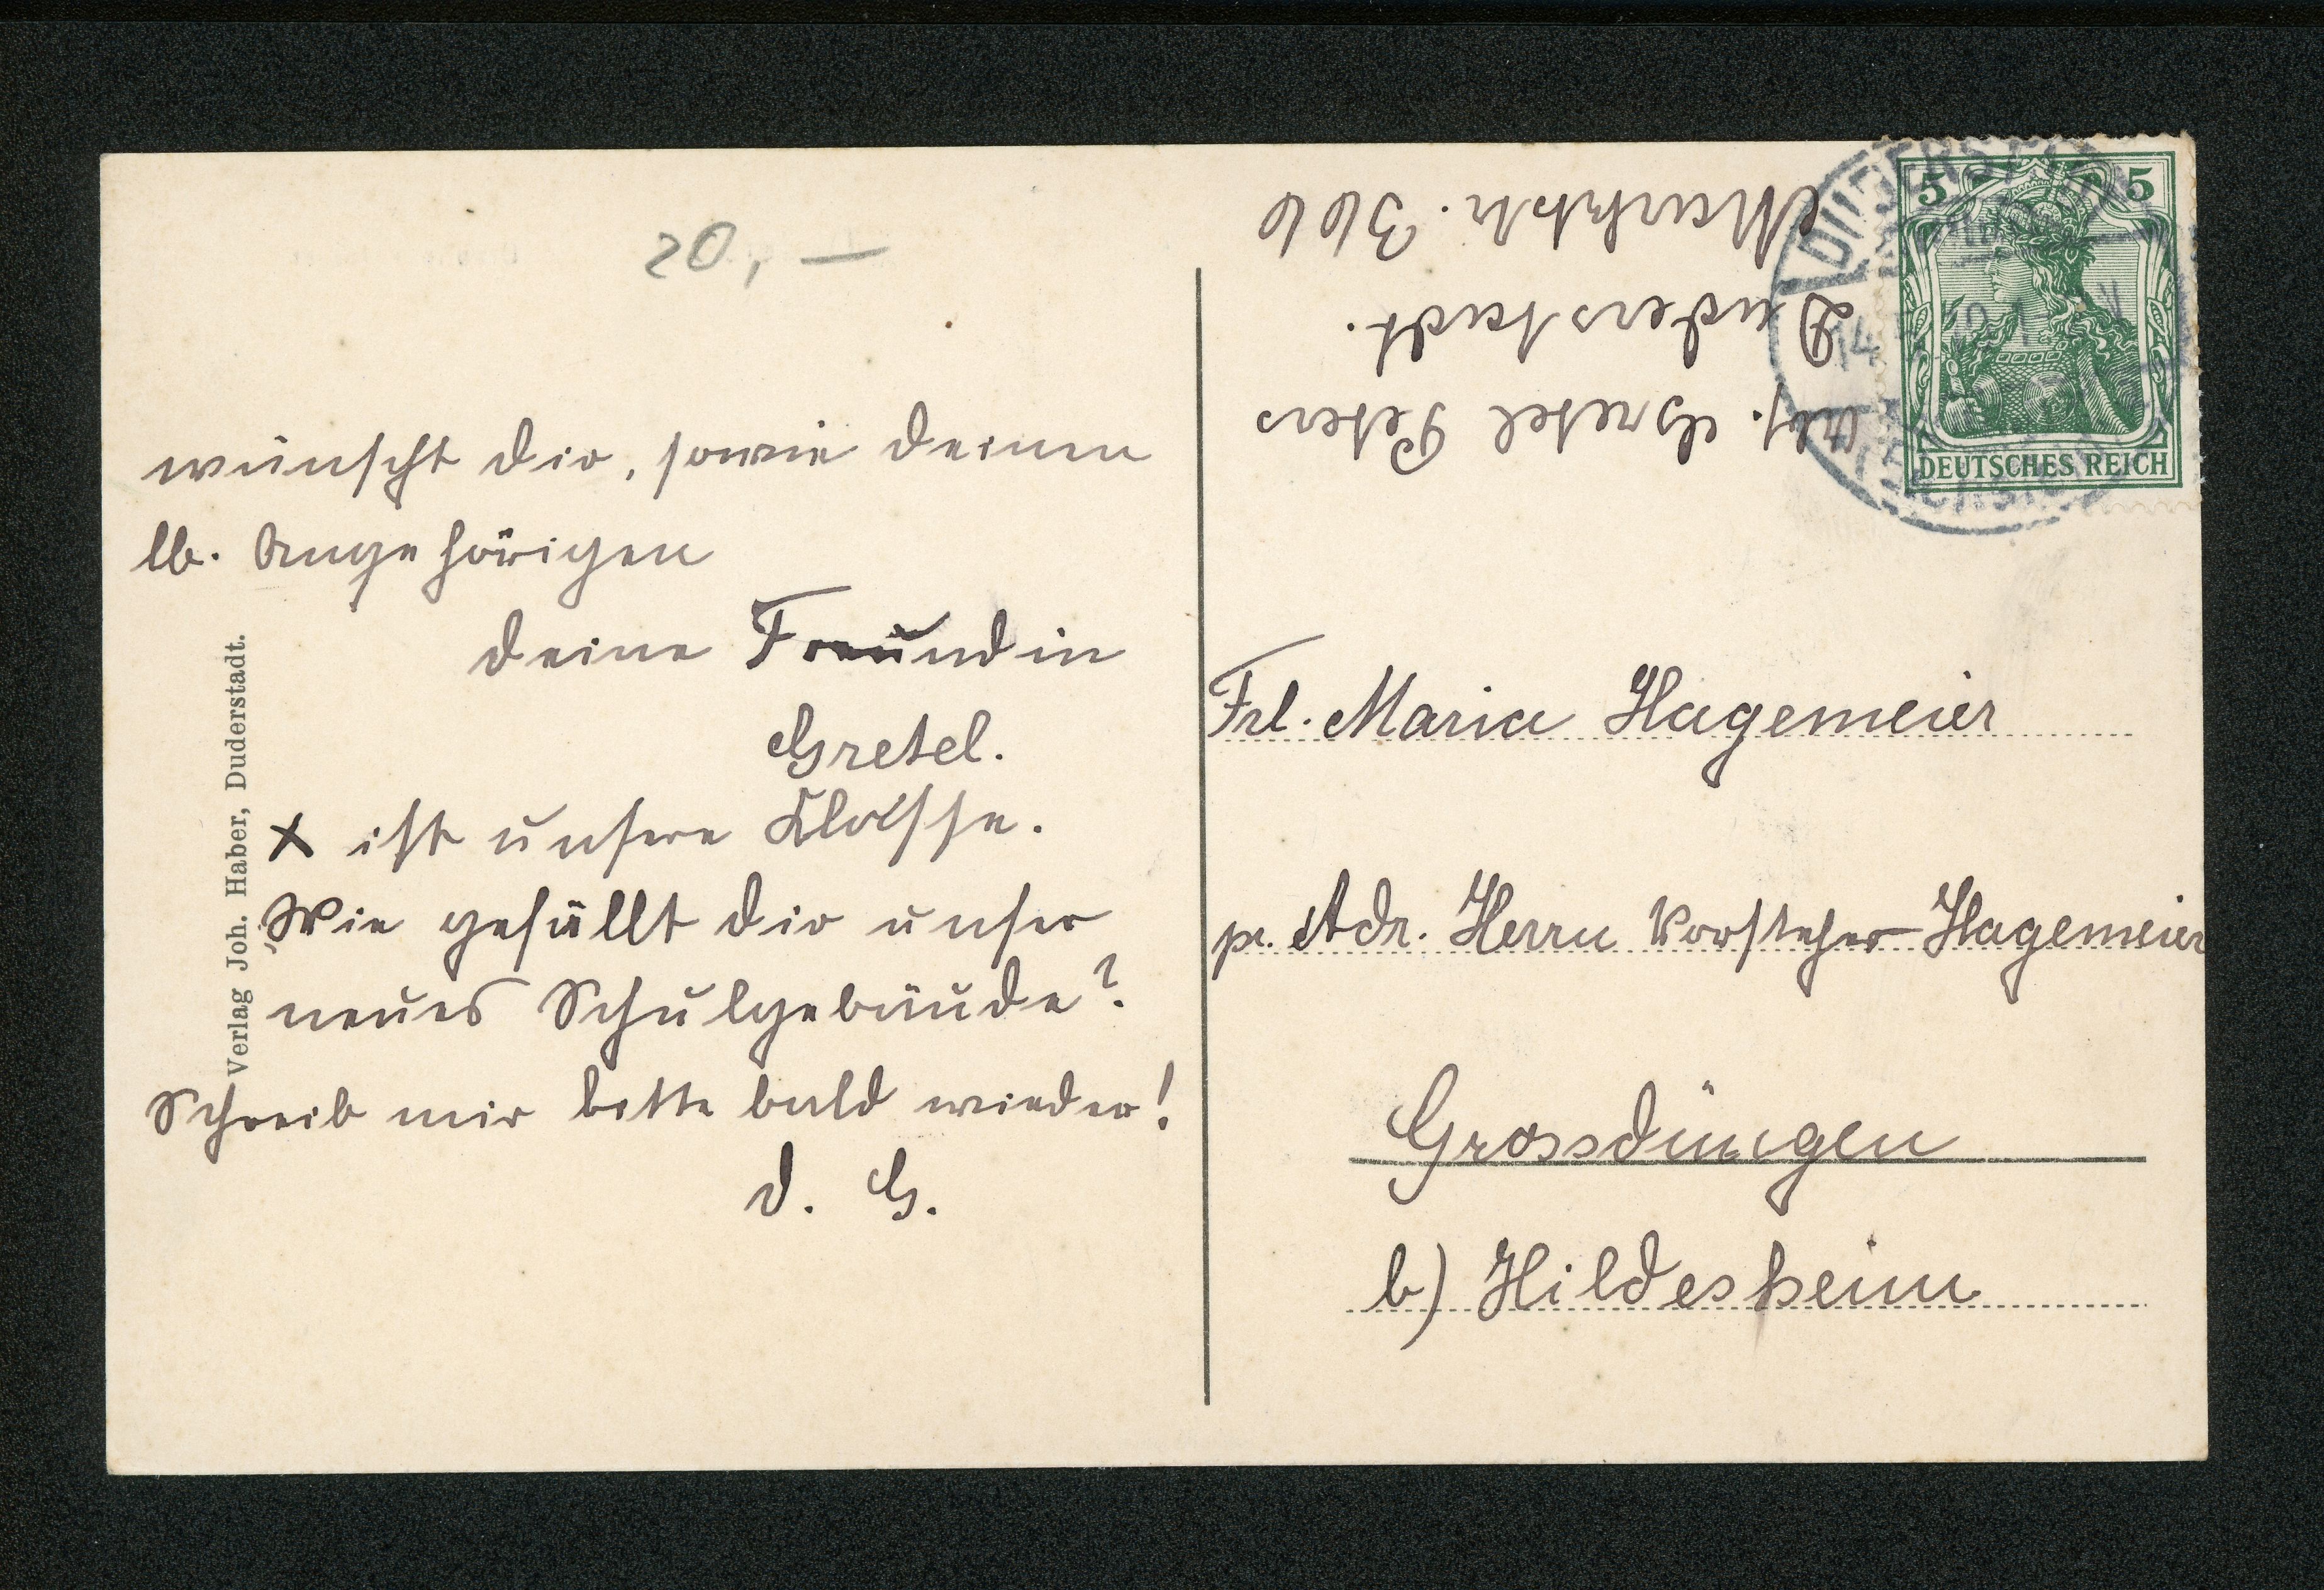 20,—
wünscht dir, sowie deinen
lb. Angehörigen
deine Freundin
Gretel.
x ist unsere Klasse.
Wie gefällt dir unser
neues Schulgebäude?
Schreib mir bitte bald wieder!
d. G.
Verlag Joh. Haber, Duderstadt.
Abs. Gretel Peters
Duderstadt.
Marktstr. 366
5 5
DEUTSCHES REICH
DUDERSTADT
14
Frl. Maria Hagemeier
pr. Adr. Herrn Vorsteher Hagemeier
Grossdüngen
b) Hildesheim